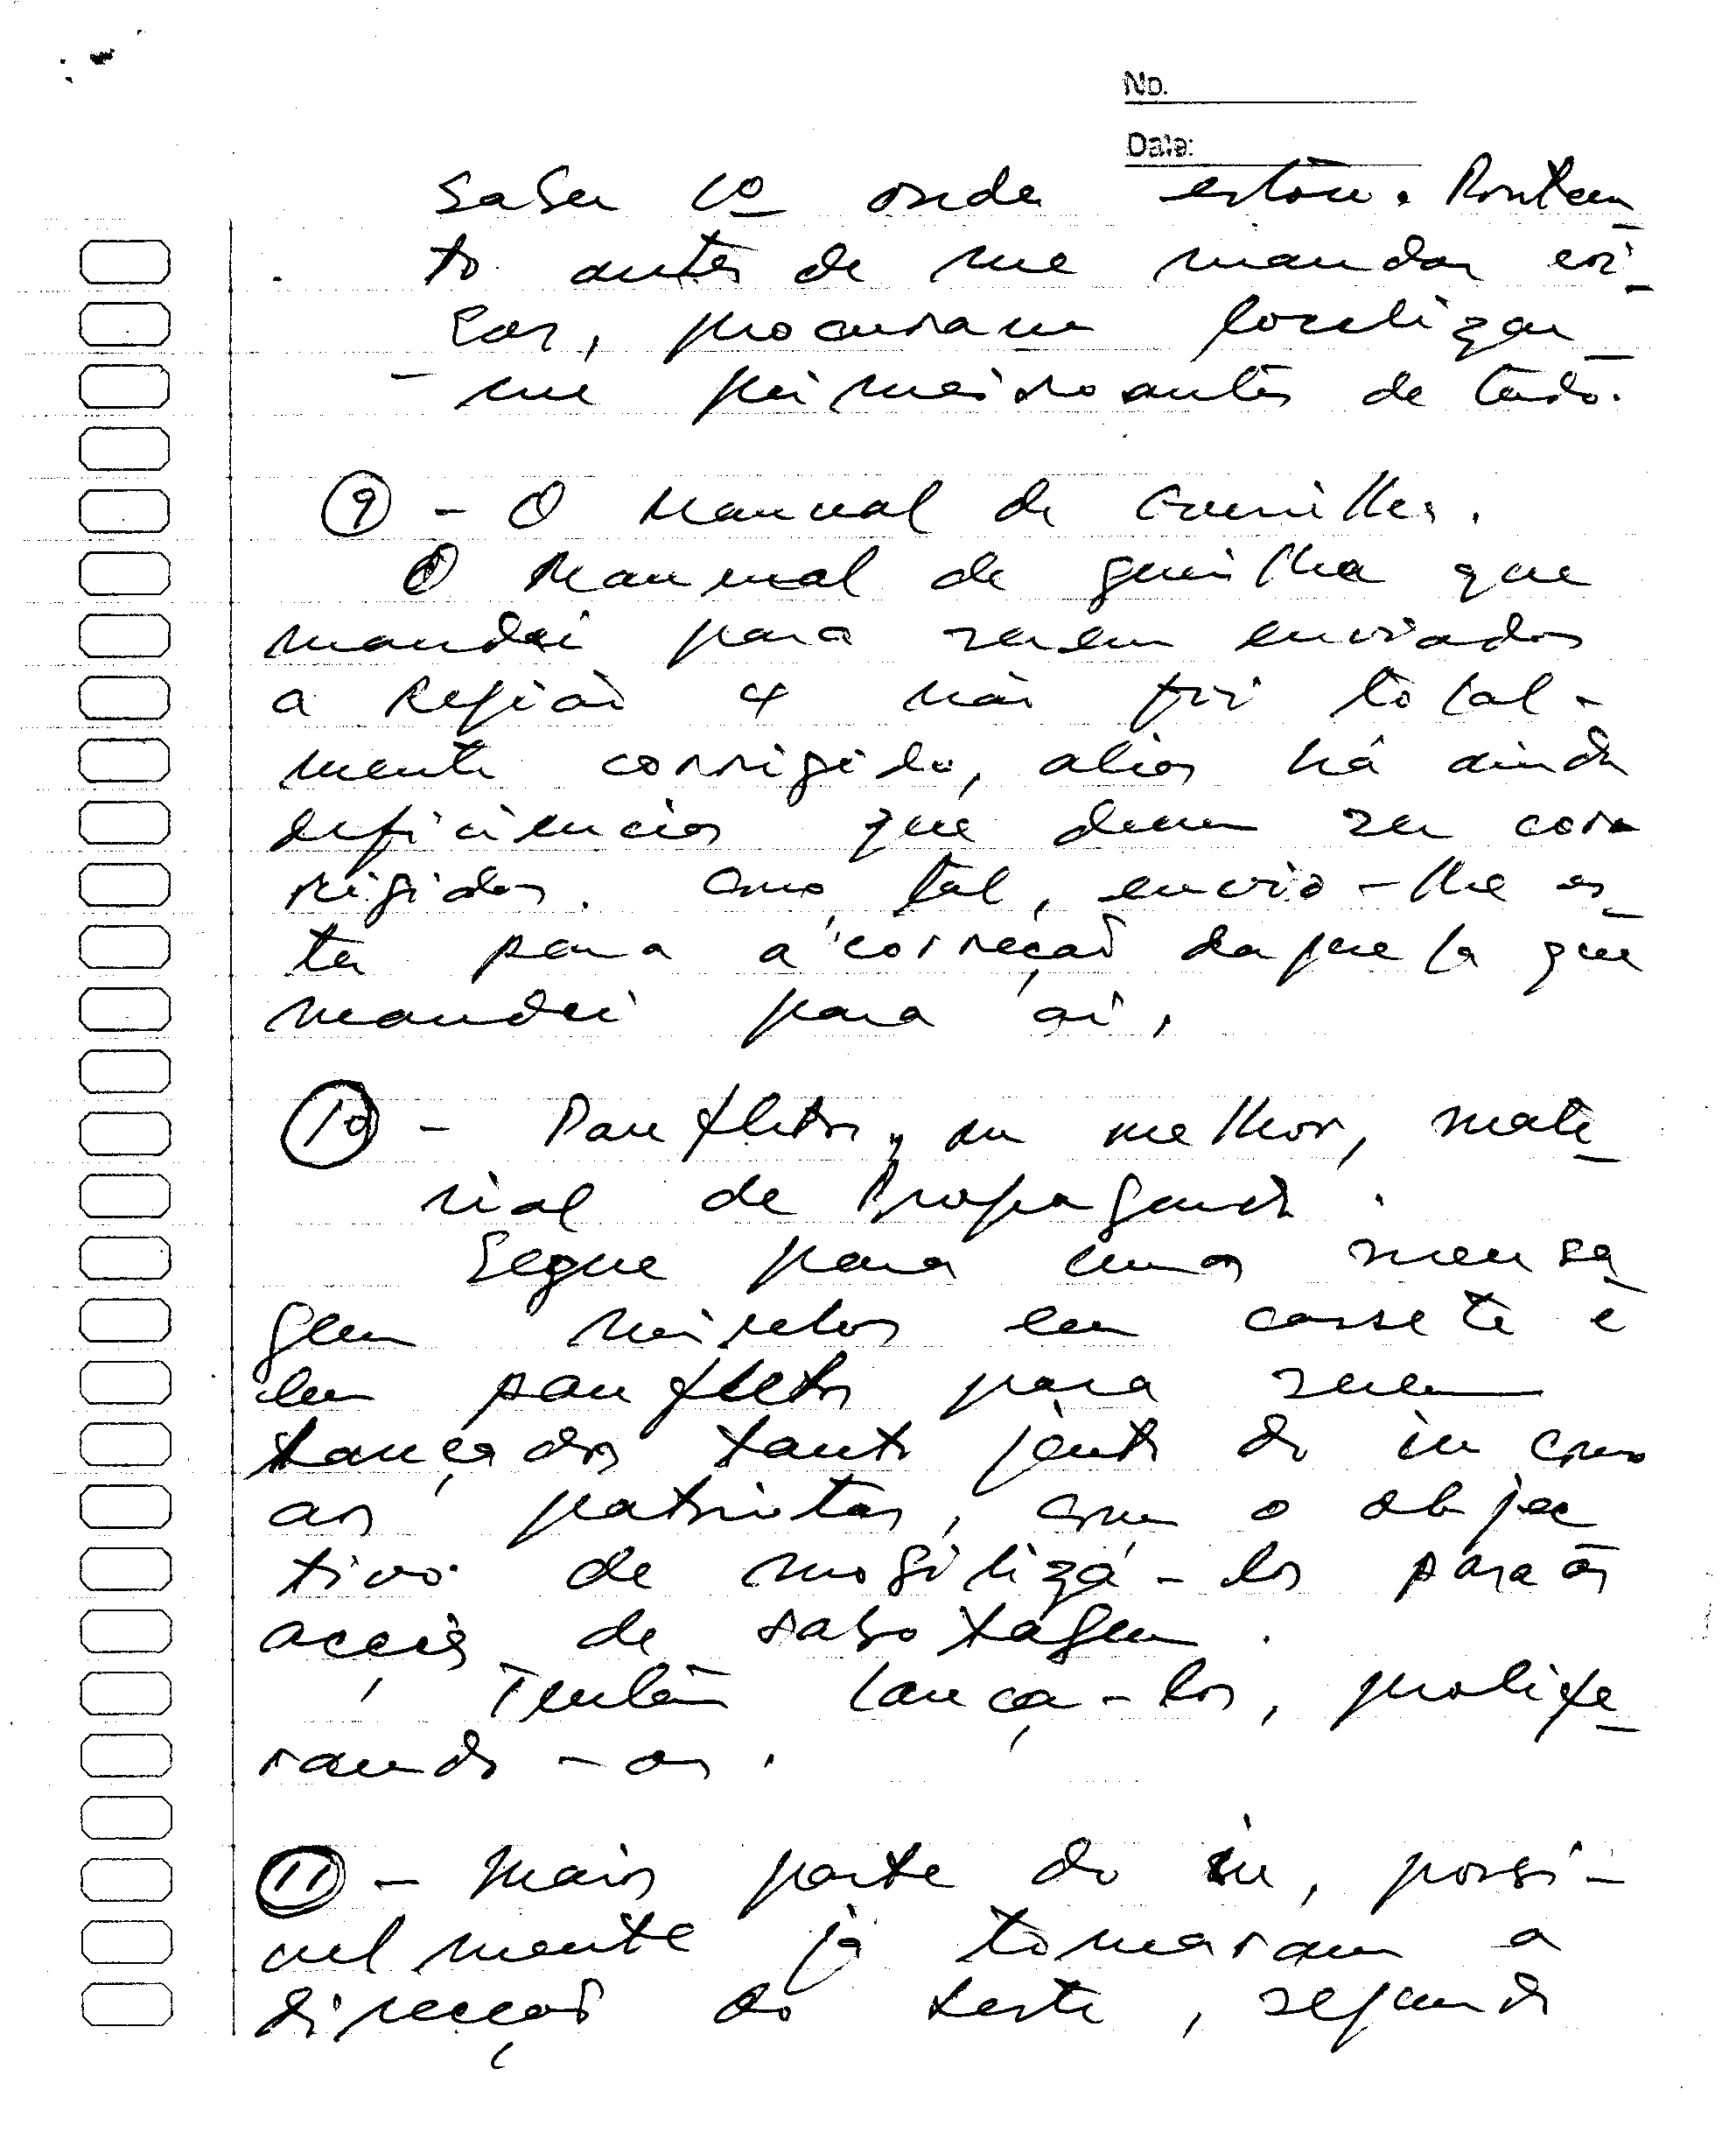 No.
Date:
saber 1º onde estou. Portan
to antes de me mandar
procuram localizar
- me primeiro antes de tudo.
⑨ - O Manual de Guerrilha.
O Manual de guerrilha que
mandei para serem enviados
a Região 4 não foi total-
mente corrigido, aliás há ainda
deficiências que devem ser cor
rigidas. Como tal, envio-lhe es
ta para a correção daquela que
mandei para aí,
⑩ - Panfletos, ou melhor, mate
rial de Propaganda.
Segue para umas mensa
gem em cassete e
em panfletos para serem
lançados tanto junto do in como
aos patriotas, com o objec
tivo de mobilizá-los para as
acções de sabotagem.
Tentem lança-los, prolife
rando-os.
⑪ - Maior parte do in, possi-
velmente já tomaram a
direcção do Leste, segundo